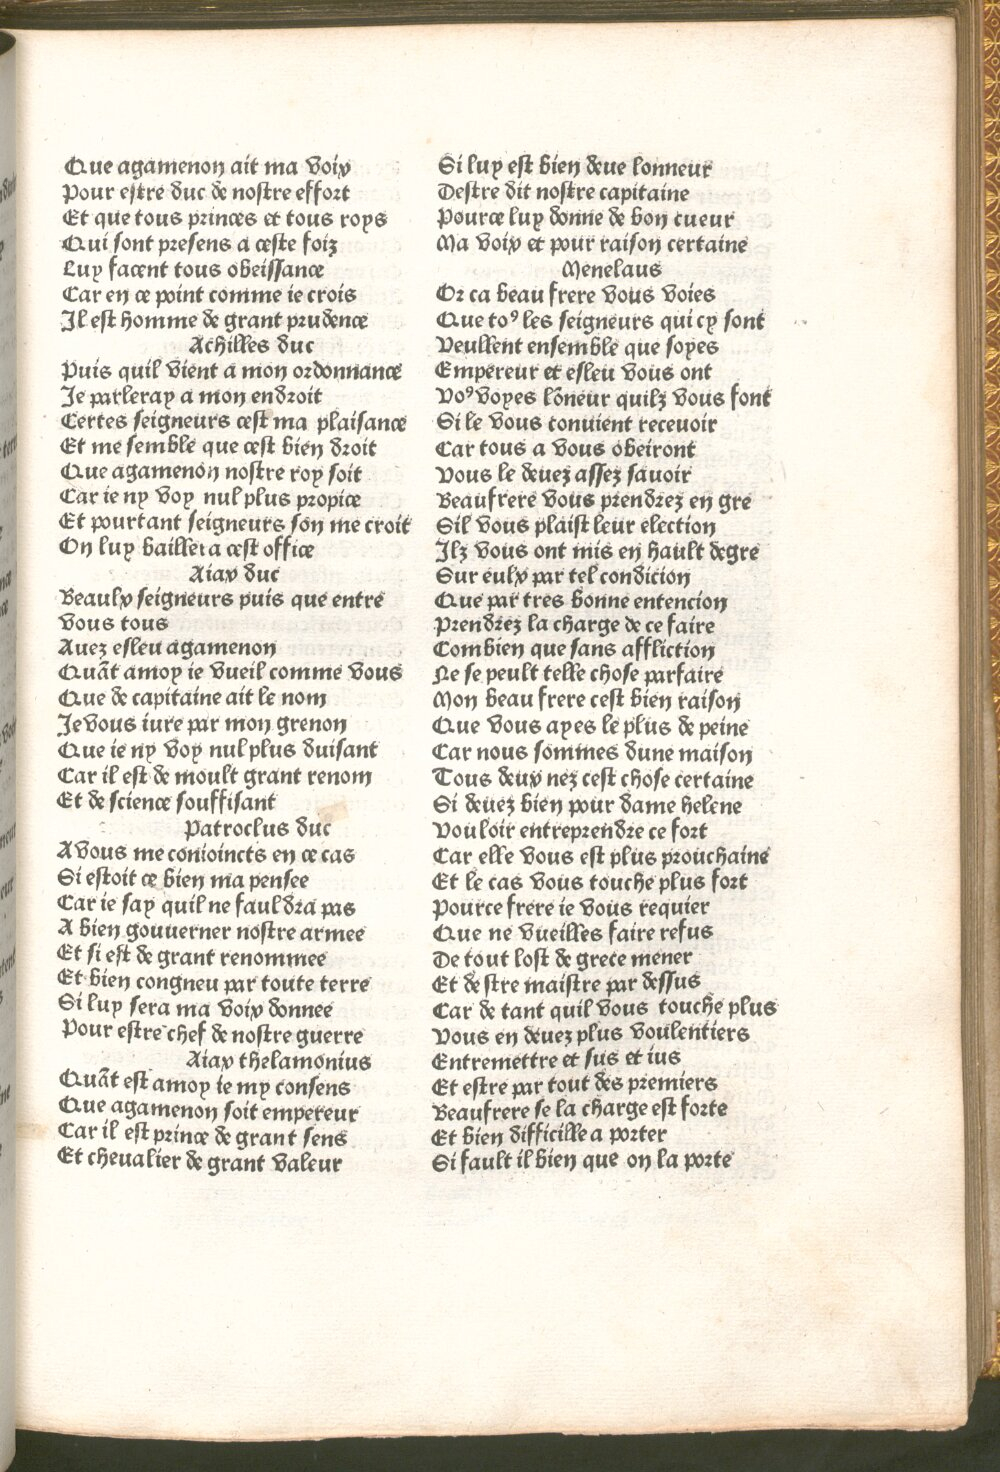 Que agamenon ait ma voix
Pour estre duc de nostre effort
Et que tous princes et tous roys
Qui sont presens a ceste foiz
Luy facent tous obeissance
Car en ce point comme ie crois
Il est homme de grant prudence
Achilles duc
Puis quil vient a mon ordonnance
Je parleray a mon endroit
Certes seigneurs cest ma plaisance
Et me semble que cest bien droit
Que agamenon nostre roy soit
Car ie ny voy nul plus propice
Et pourtant seigneurs son me croit
On luy baillera cest office
Aiax duc
Beaulx seigneurs puis que entre
vous tous
Auez esleu agamenon
Quãt amoy ie vueil comme vous
Que de capitaine ait le nom
Je vous iure par mon grenon
Que ie ny voy nul plus duisant
Car il est de moult grant renom
Et de science souffisant
Patroclus duc
A vous me conioincts en ce cas
Si estoit ce bien ma pensee
Car ie say quil ne fauldra pas
A bien gouuerner nostre armee
Et si est de grant renommee
Et bien congneu par toute terre
Si luy sera ma voix donnee
Pour estre chef de nostre guerre
Aiax thelamonius
Quãt est amoy ie my consens
Que agamenon soit empereur
Car il est prince de grant sens
Et chevalier de grant valeur
Si luy est bien deue lonneur
Destre dit nostre capitaine
Pource luy donne de bon cueur
Ma voix et pour raison certaine
Menelaus
Or ca beau frere vous voies
Que toꝰ les seigneurs qui cy sont
Veullent ensemble que soyes
Empereur et esleu vous ont
Voꝰ voyes lõneur quilz vous font
Si le vous conuient receuoir
Car tous a vous obeiront
Vous le deuez assez sauoir
Beaufrere vous prendrez en gre
Sil vous plaist leur election
Ilz vous ont mis en hault degre
Sur eulx par tel condicion
Que par tres bonne entencion
Prendrez la charge de ce faire
Combien que sans affliction
Ne se peult telle chose parfaire
Mon beau frere cest bien raison
Que vous ayes le plus de peine
Car nous sommes dune maison
Tous deux nez cest chose certaine
Si deuez bien pour dame helene
Vouloir entreprendre ce fort
Car elle vous est plus prouchaine
Et le cas vous touche plus fort
Pource frere ie vous requier
Que ne vueilles faire refus
De tout lost de grece mener
Et destre maistre par dessus
Car de tant quil vous touche plus
Vous en deuez plus voulentiers
Entremettre et sus et ius
Et estre par tout des premiers
Beaufrere se la charge est forte
Et bien difficille a porter
Si fault il bien que on la porte